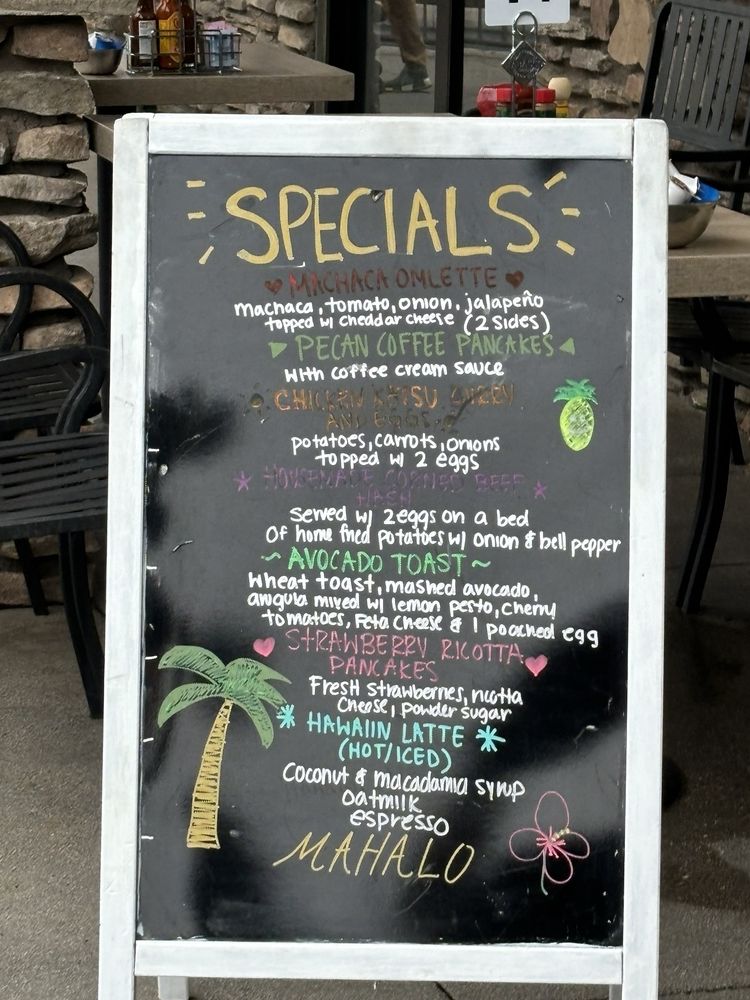 SPECIALS
MACHACA OMLETTE
machaca, tomato, onion, jalapeño
topped w/ cheddar cheese (2 sides)
PECAN COFFEE PANCAKES
with coffee cream sauce
CHICKEN KATSU CURRY
AND EGGS
potatoes, carrots, onions
topped w/ 2 eggs
HOUSEMADE CORNED BEEF
HASH
Served w/ 2 eggs on a bed
of home fried potatoes w/ onion & bell pepper
~ AVOCADO TOAST ~
Wheat toast, mashed avocado,
arugula mixed w/ lemon pesto, cherry
tomatoes, Feta cheese & 1 poached egg
STRAWBERRY RICOTTA
PANCAKES
Fresh strawberries, ricotta
Cheese, powder sugar
HAWAIIN LATTE
(HOT/ICED)
Coconut & macadamia syrup
oatmilk
espresso
MAHALO